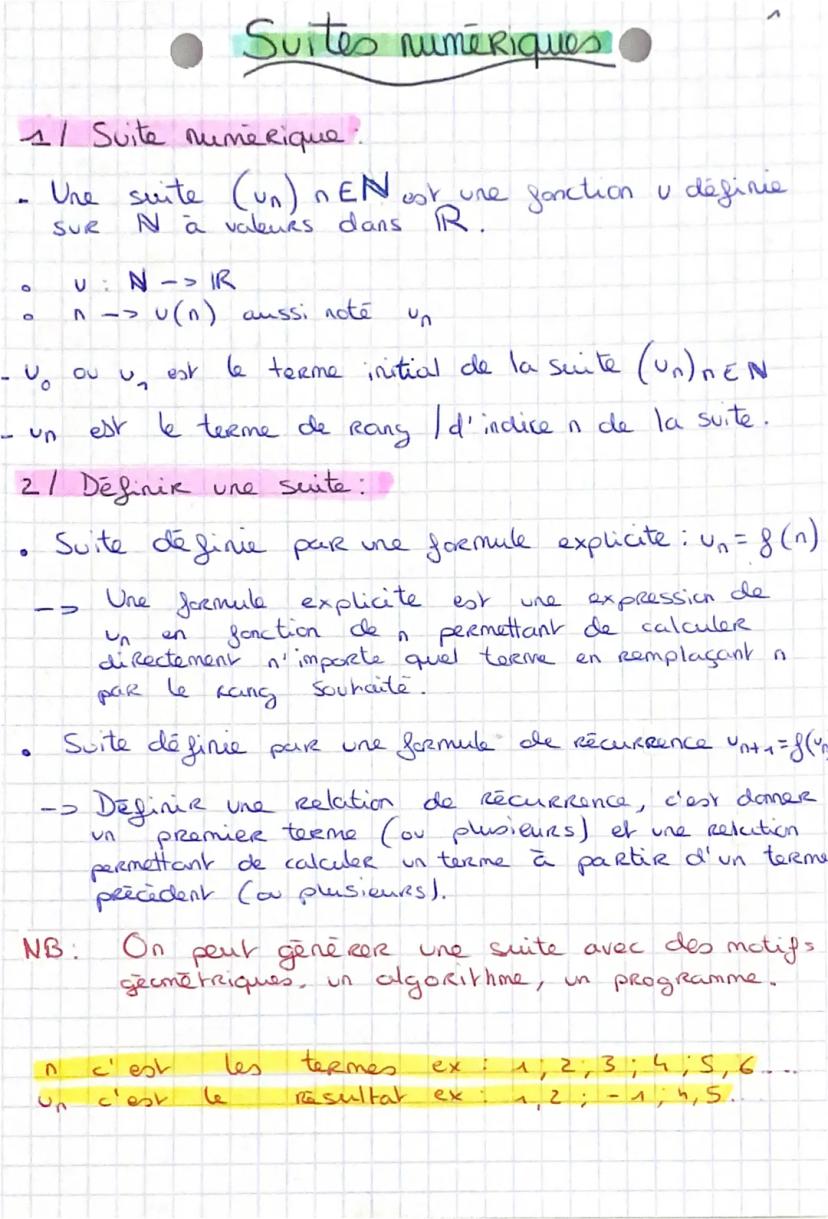 1
Suites numériques
1/ Suite numérique :
- Une suite (un) n ∈ ℕ est une fonction u définie
sur ℕ à valeurs dans ℝ.
° u : ℕ --> ℝ
° n --> u(n) aussi noté un
- u0 ou u1 est le terme initial de la suite (un) n ∈ ℕ
- un est le terme de rang / d'indice n de la suite.
2/ Définir une suite :
• Suite définie par une formule explicite : un = f(n)
--> Une formule explicite est une expression de
un en fonction de n permettant de calculer
directement n'importe quel terme en remplaçant n
par le rang souhaité.
• Suite définie par une formule de récurrence un+1 = f(un
--> Définir une relation de récurrence, c'est donner
un premier terme (ou plusieurs) et une relation
permettant de calculer un terme à partir d'un terme
précédent (ou plusieurs).
NB : On peut générer une suite avec des motifs
géométriques, un algorithme, un programme.
n c'est les termes ex : 1 ; 2 ; 3 ; 4 ; 5 , 6 ....
un c'est le résultat ex : 1,2 ; -1 ; 4,5..